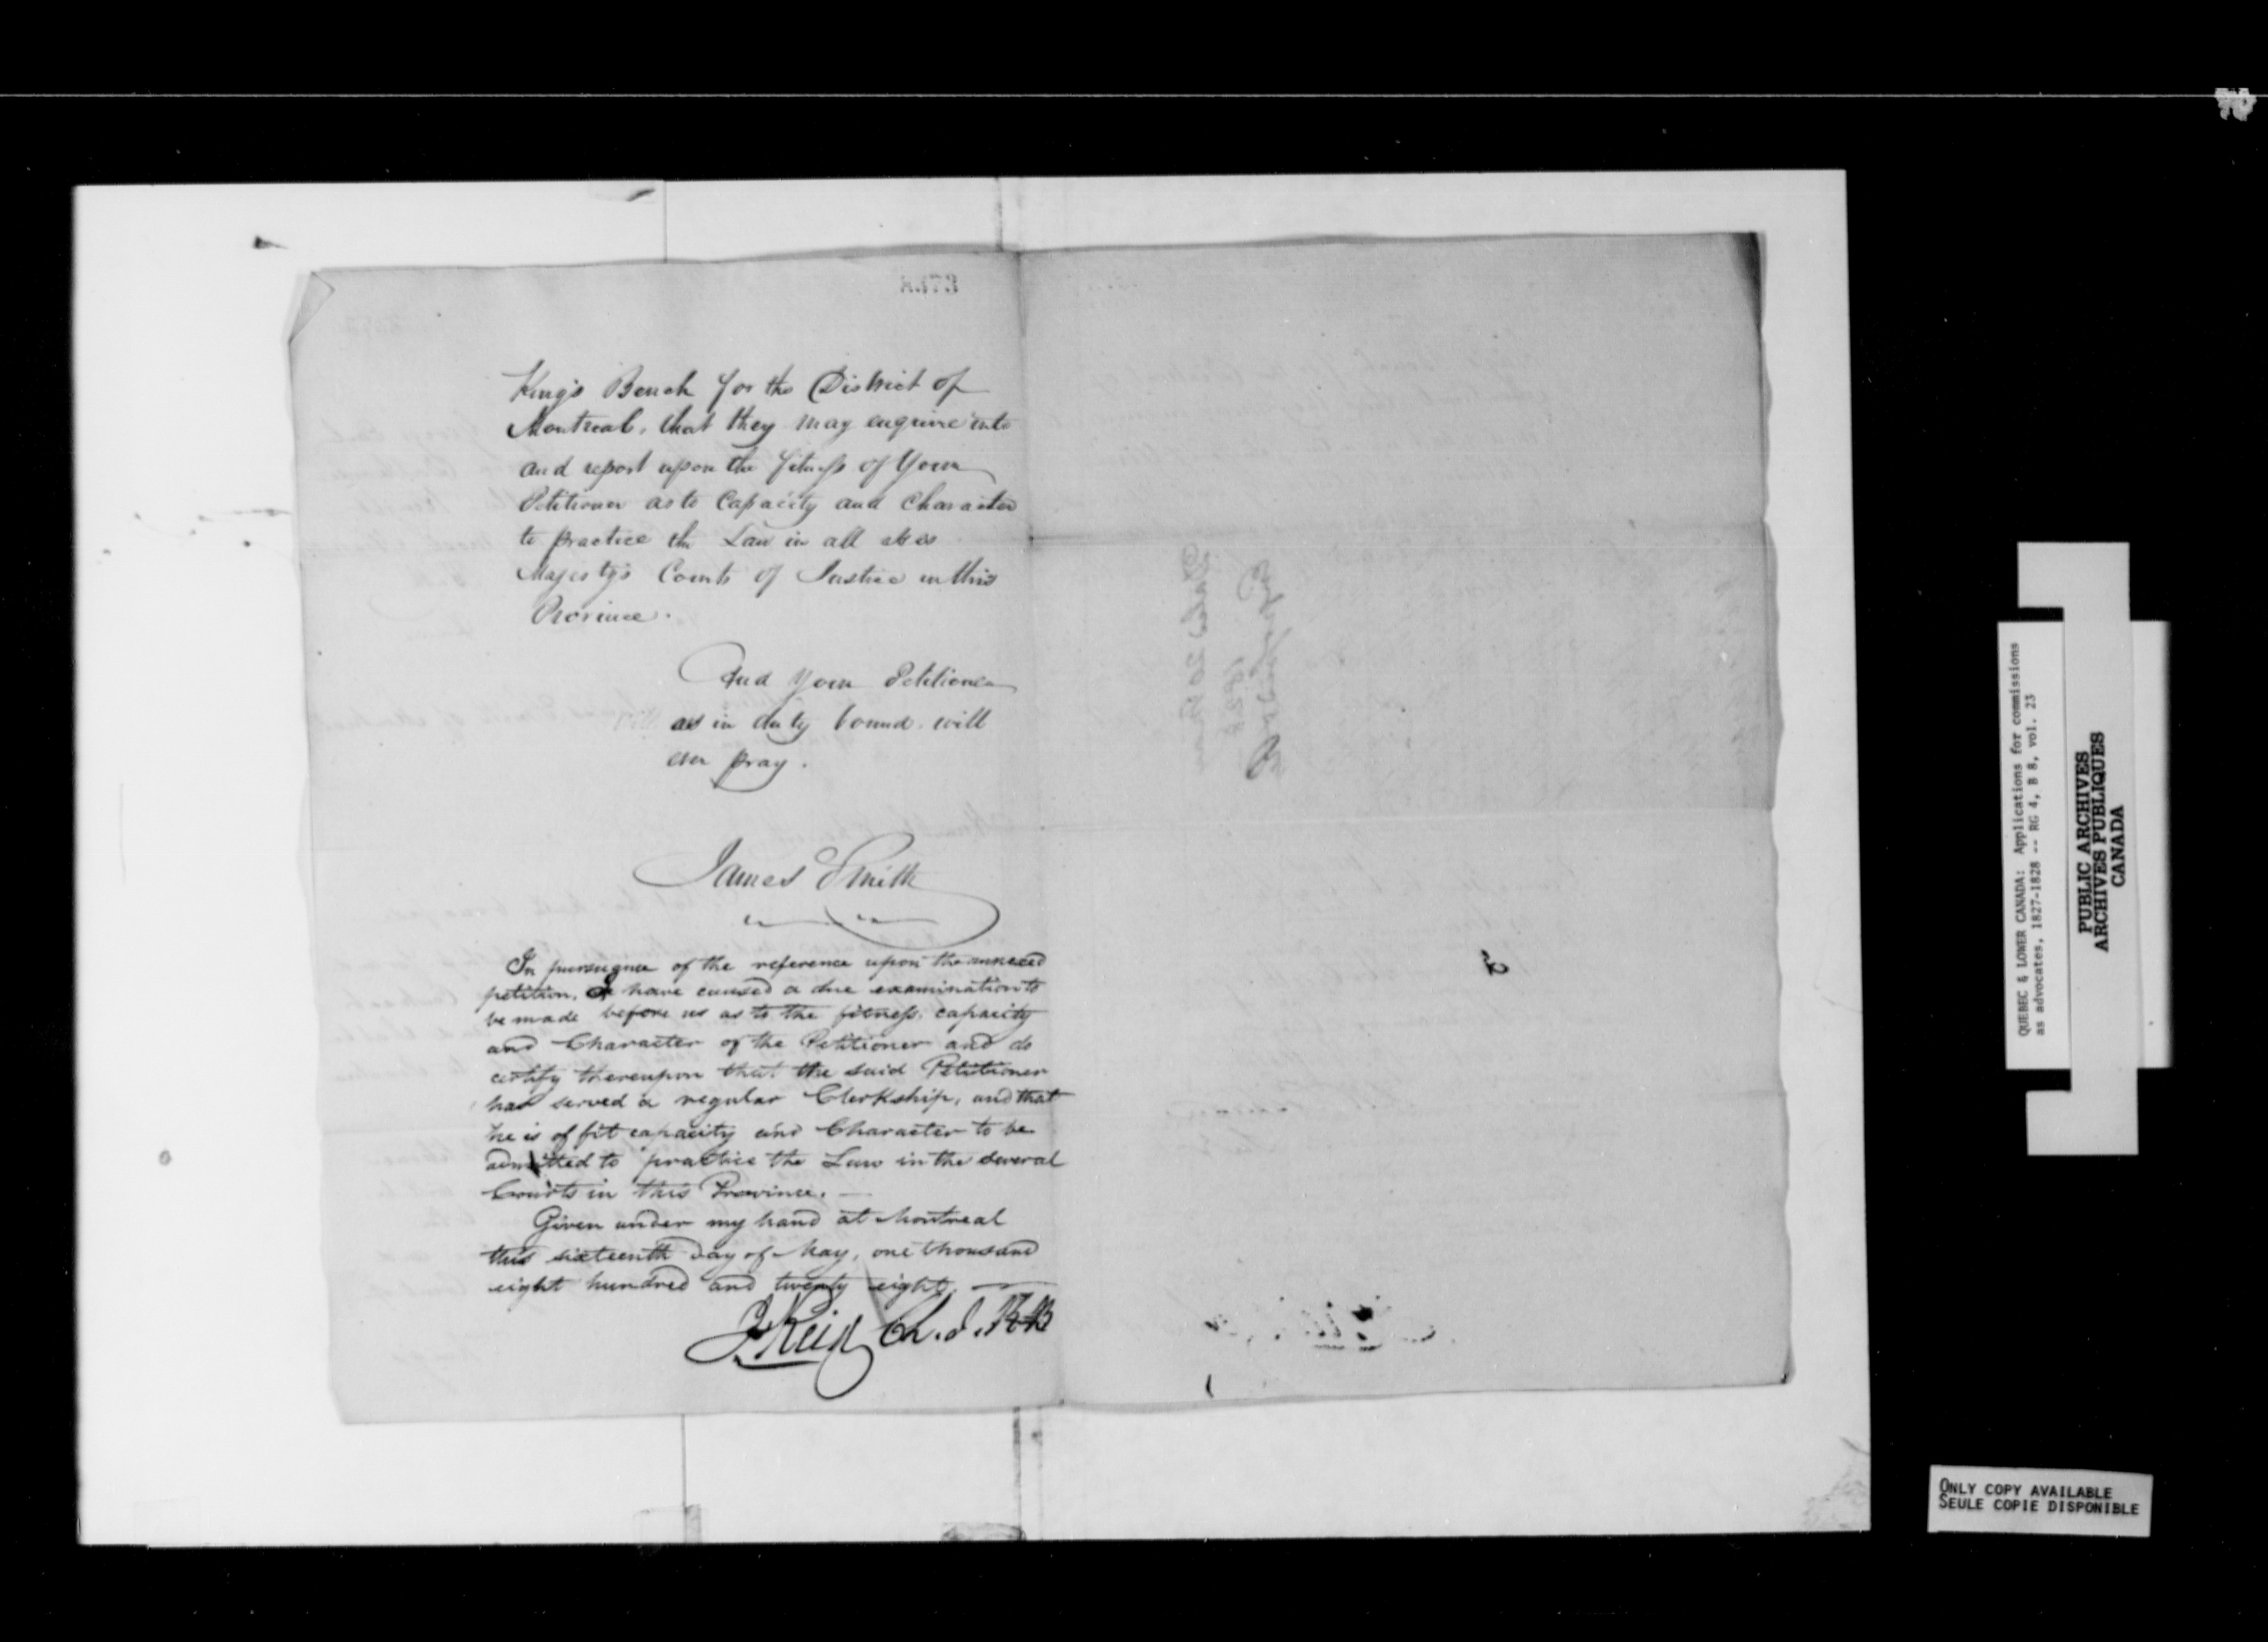 King's Bench for the District of
Montreal, that they may enquire into
and report upon the fitness of Your
Petitioner as to Capacity and Character
to practice the Law in all His
Majesty's Courts of Justice in this
Province.
And Your Petitioner
as in duty bound will
ever pray.
James Smith
In pursuance of the reference upon the annexed
petition, I have caused a due examination to
be made before us as to the fitness, capacity
and Character of the Petitioner and do
certify thereupon that the said Petitioner
has served a regular Clerkship, and that
he is of fit capacity and Character to be
admitted to practice the Law in the several
Courts in this Province. —
Given under my hand at Montreal
this sixteenth day of May, one thousand
eight hundred and twenty eight. —
J Reid Ch. J. K.B
QUEBEC & LOWER CANADA: Applications for commissions
as advocates, 1827-1828 -- RG 4, B 8, vol. 23
PUBLIC ARCHIVES
ARCHIVES PUBLIQUES
CANADA
ONLY COPY AVAILABLE
SEULE COPIE DISPONIBLE